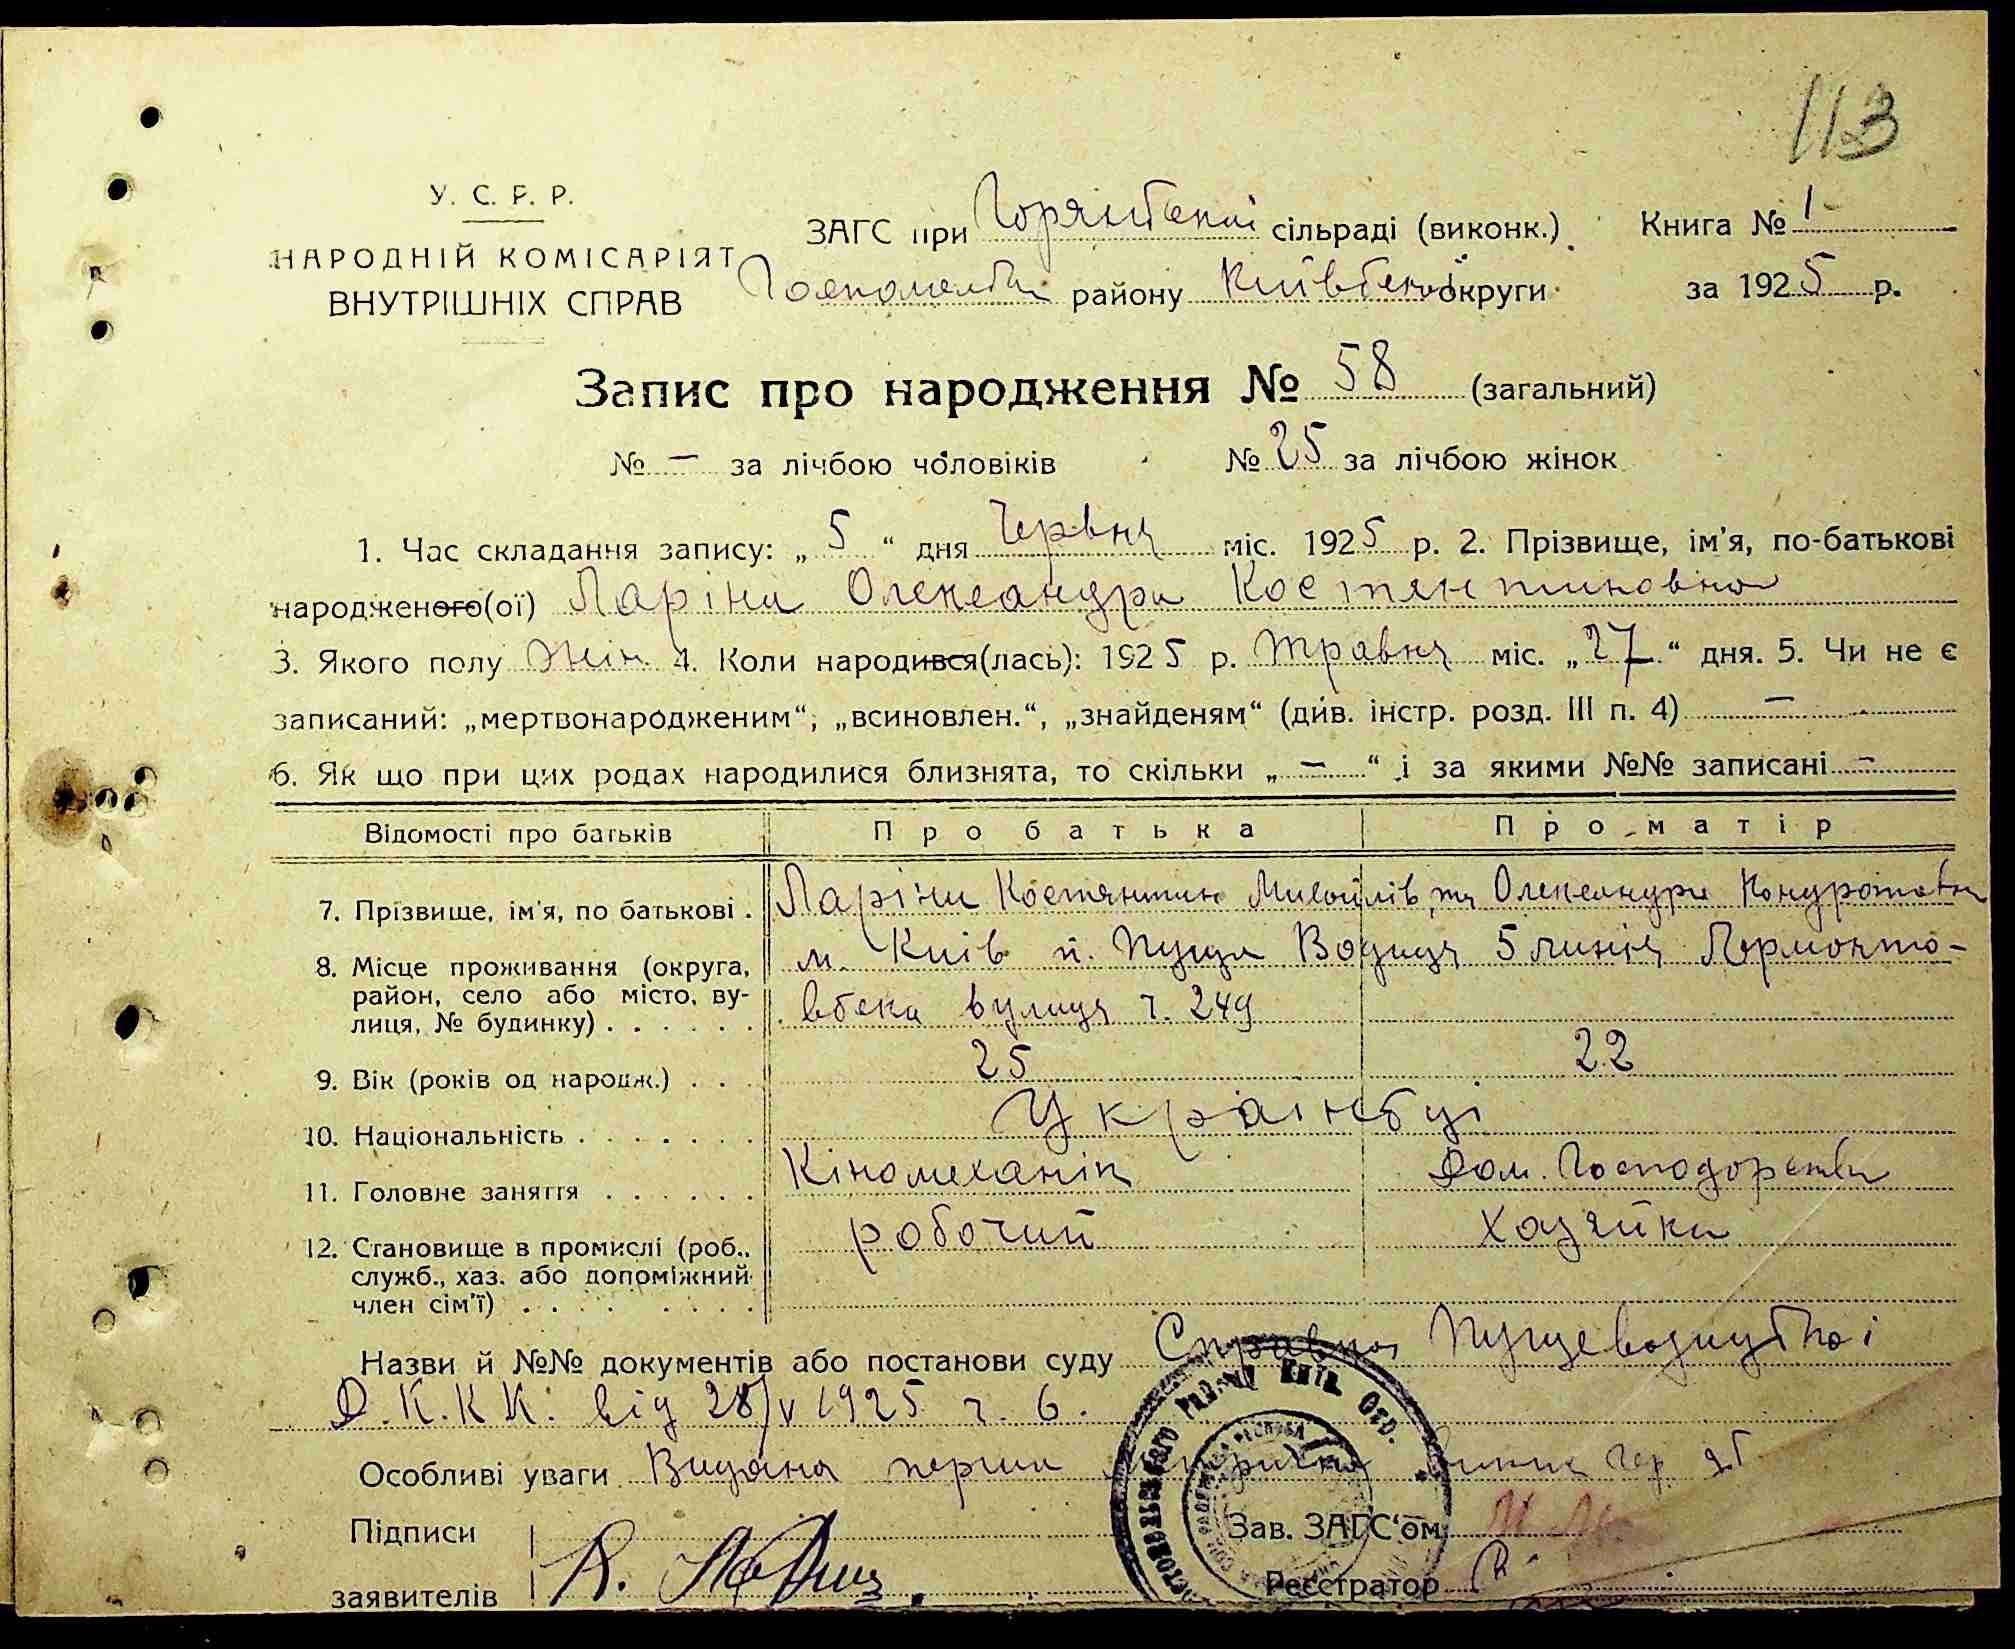 113
У. С. Р. Р.
ЗАГС при Горянській сільраді (виконк.) Книга № 1
НАРОДНІЙ КОМІСАРІЯТ
Гостомельськ району Київської округи за 1925 р.
ВНУТРІШНІХ СПРАВ
Запис про народження № 58 (загальний)
№ — за лічбою чоловіків № 25 за лічбою жінок
1. Час складання запису: „ 5 “ дня Червня міс. 1925 р. 2. Прізвище, ім'я, по-батькові
народженого(ої) Ларіна Олександра Костянтиновна
3. Якого полу жін. 4. Коли народився(лась): 1925 р. травня міс. „27“ дня. 5. Чи не є
записаний: „мертвонародженим“, „всиновлен.“, „знайденям“ (див. інстр. розд. III п. 4) —
6. Як що при цих родах народилися близнята, то скільки „ — “ і за якими №№ записані —
Відомості про батьків Про батька Про матір
7. Прізвище, ім'я, по батькові . Ларіни Костянтин Михайлів, та Олександра Кондратовна
8. Місце проживання (округа, м. Київ п. Пуща Водиця 5 линія Лермонто-
район, село або місто, ву-
лиця, № будинку) . . . . . . вська вулиця ч. 249
9. Вік (років од народж.) . . . 25 22
10. Національність . . . . . . . Українсці
11. Головне заняття . . . . . . Кіномеханік Дом. Господарство
12. Становище в промислі (роб., робочий хазяйка
служб., хаз. або допоміжний
член сім'ї) . . . . . . . .
Назви й №№ документів або постанови суду Справка Пущеводицької
Д.К.К.К. від 28/V 1925 ч. 6.
Особливі уваги Видана перша
Підписи Зав. ЗАГС'ом
заявителів К. Реєстратор